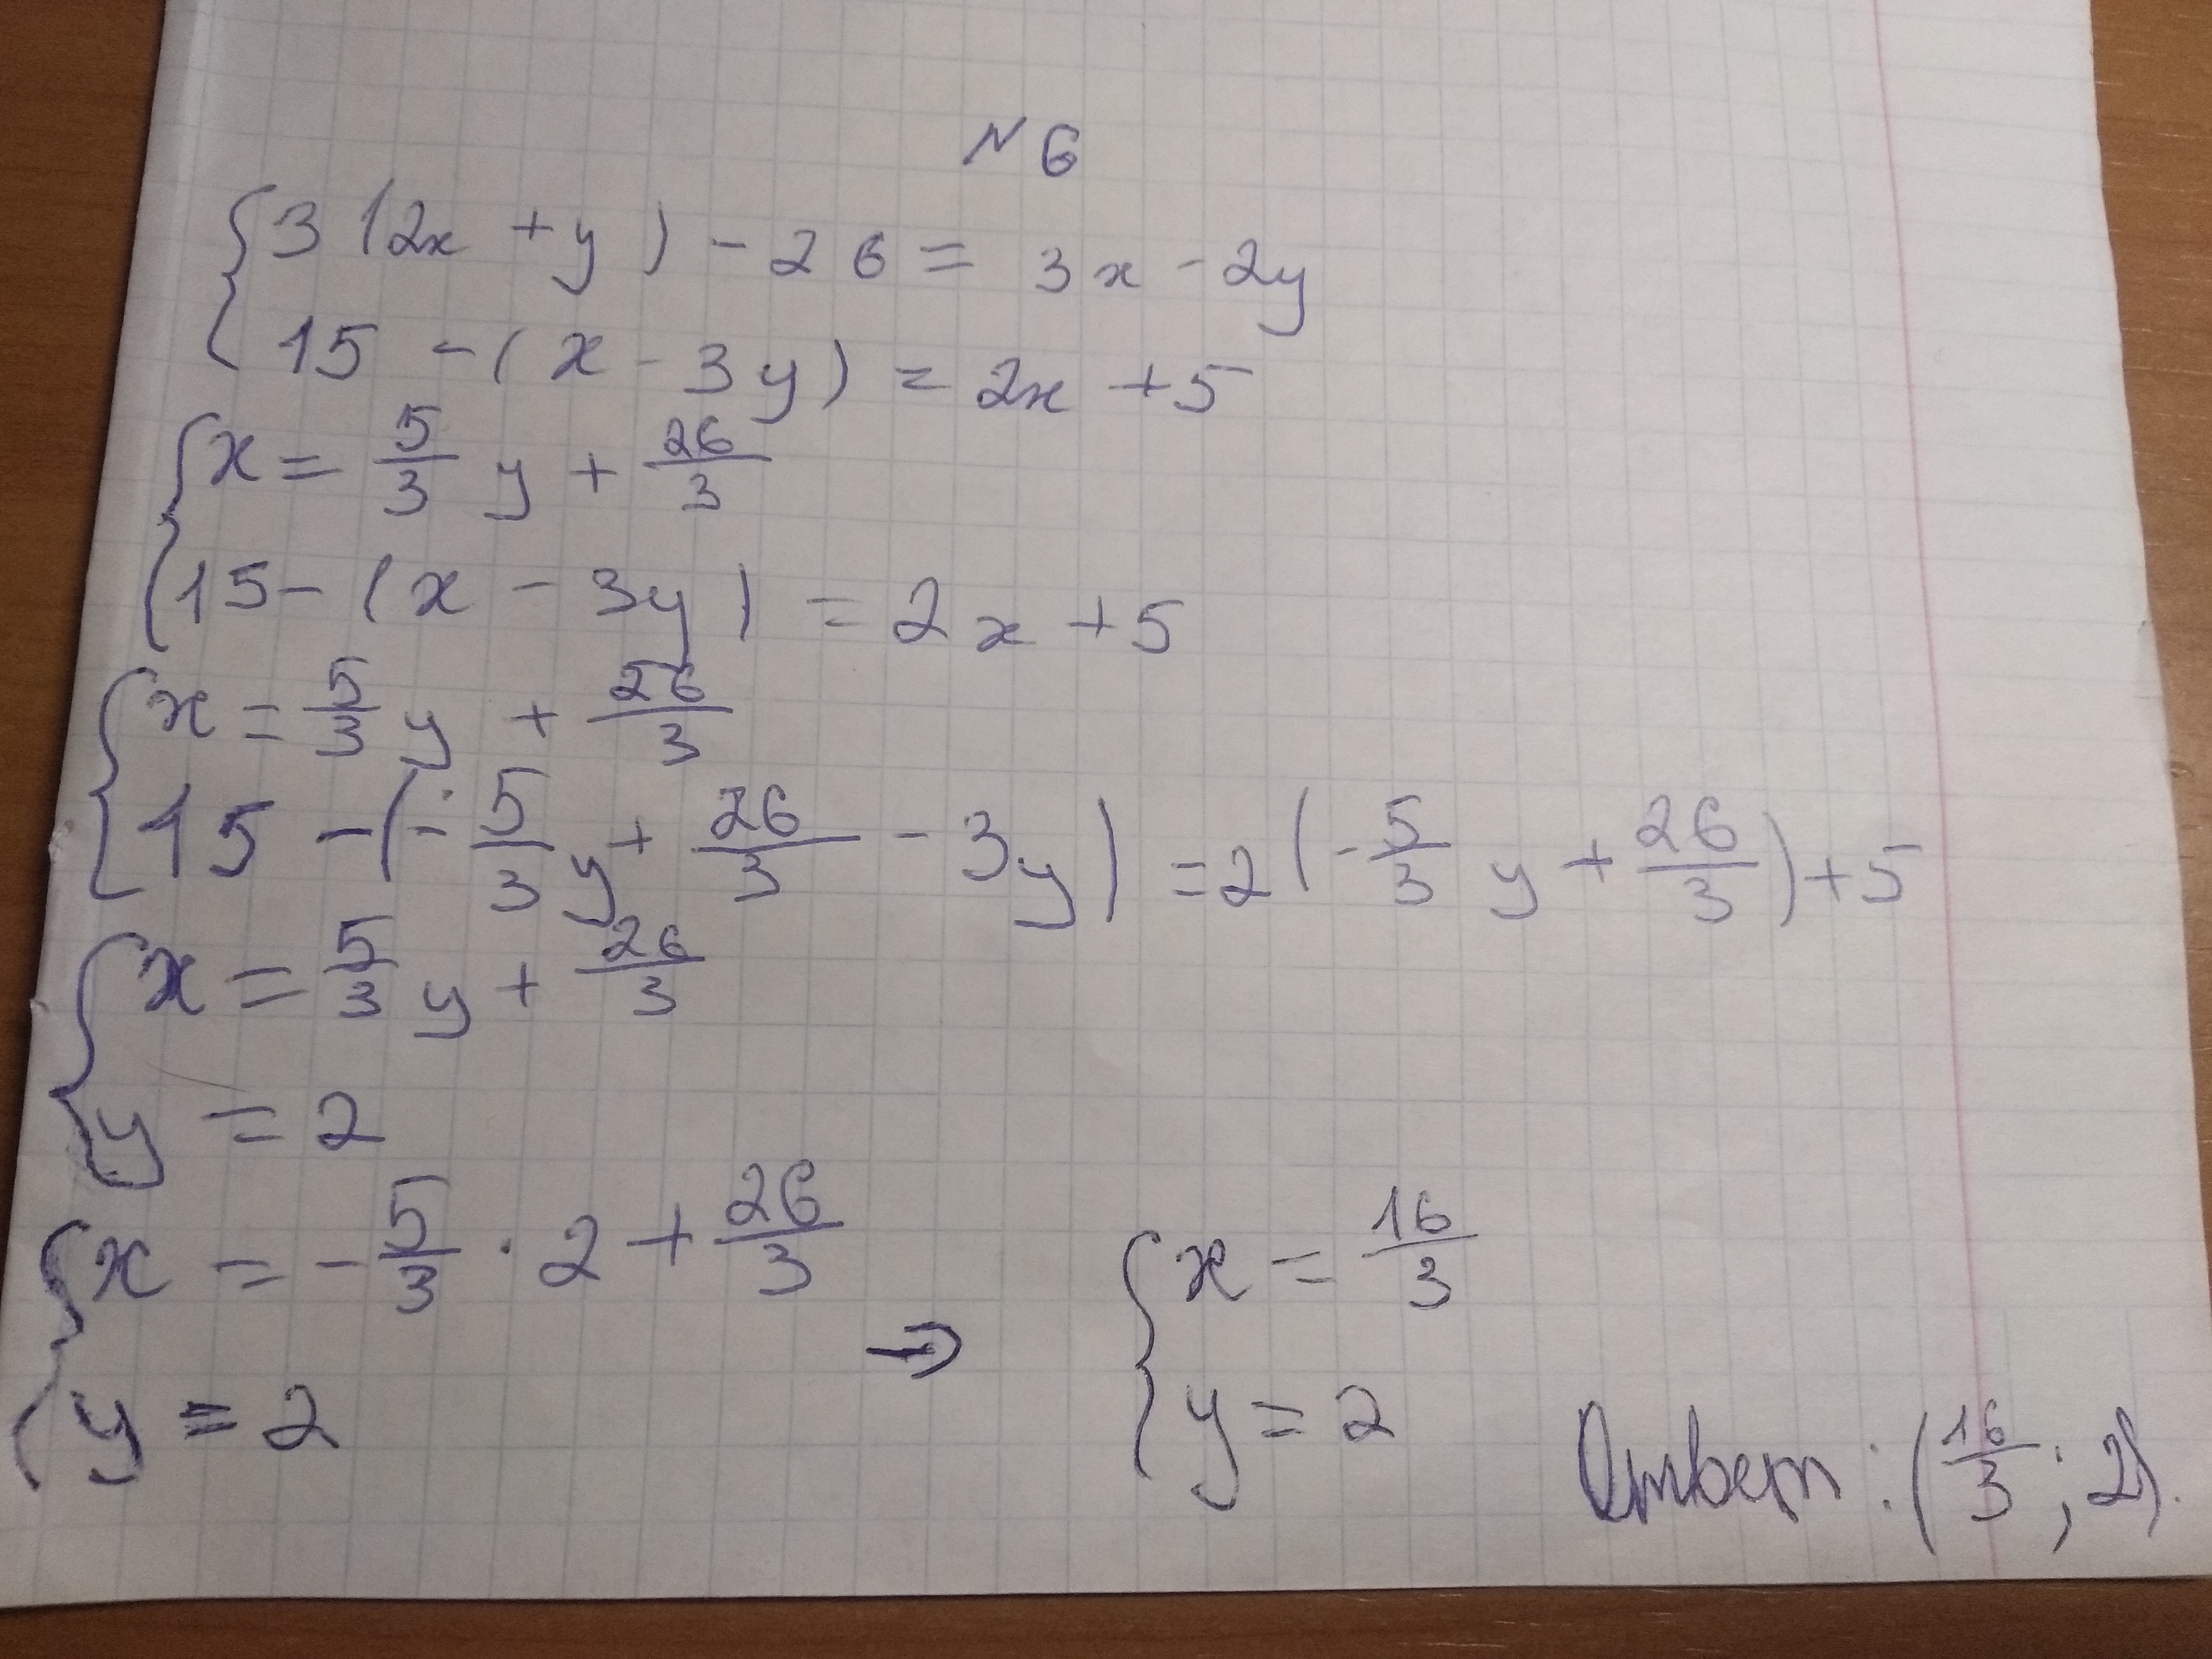 N 6
{ 3 (2x + y) - 26 = 3x - 2y
15 - (x - 3y) = 2x + 5
{ x = 5/3 y + 26/3
15 - (x - 3y) = 2x + 5
{ x = 5/3 y + 26/3
15 - (- 5/3 y + 26/3 - 3y) = 2(- 5/3 y + 26/3) + 5
{ x = 5/3 y + 26/3
y = 2
{ x = - 5/3 · 2 + 26/3
y = 2
→
{ x = 16/3
y = 2
Ответ: (16/3 ; 2).